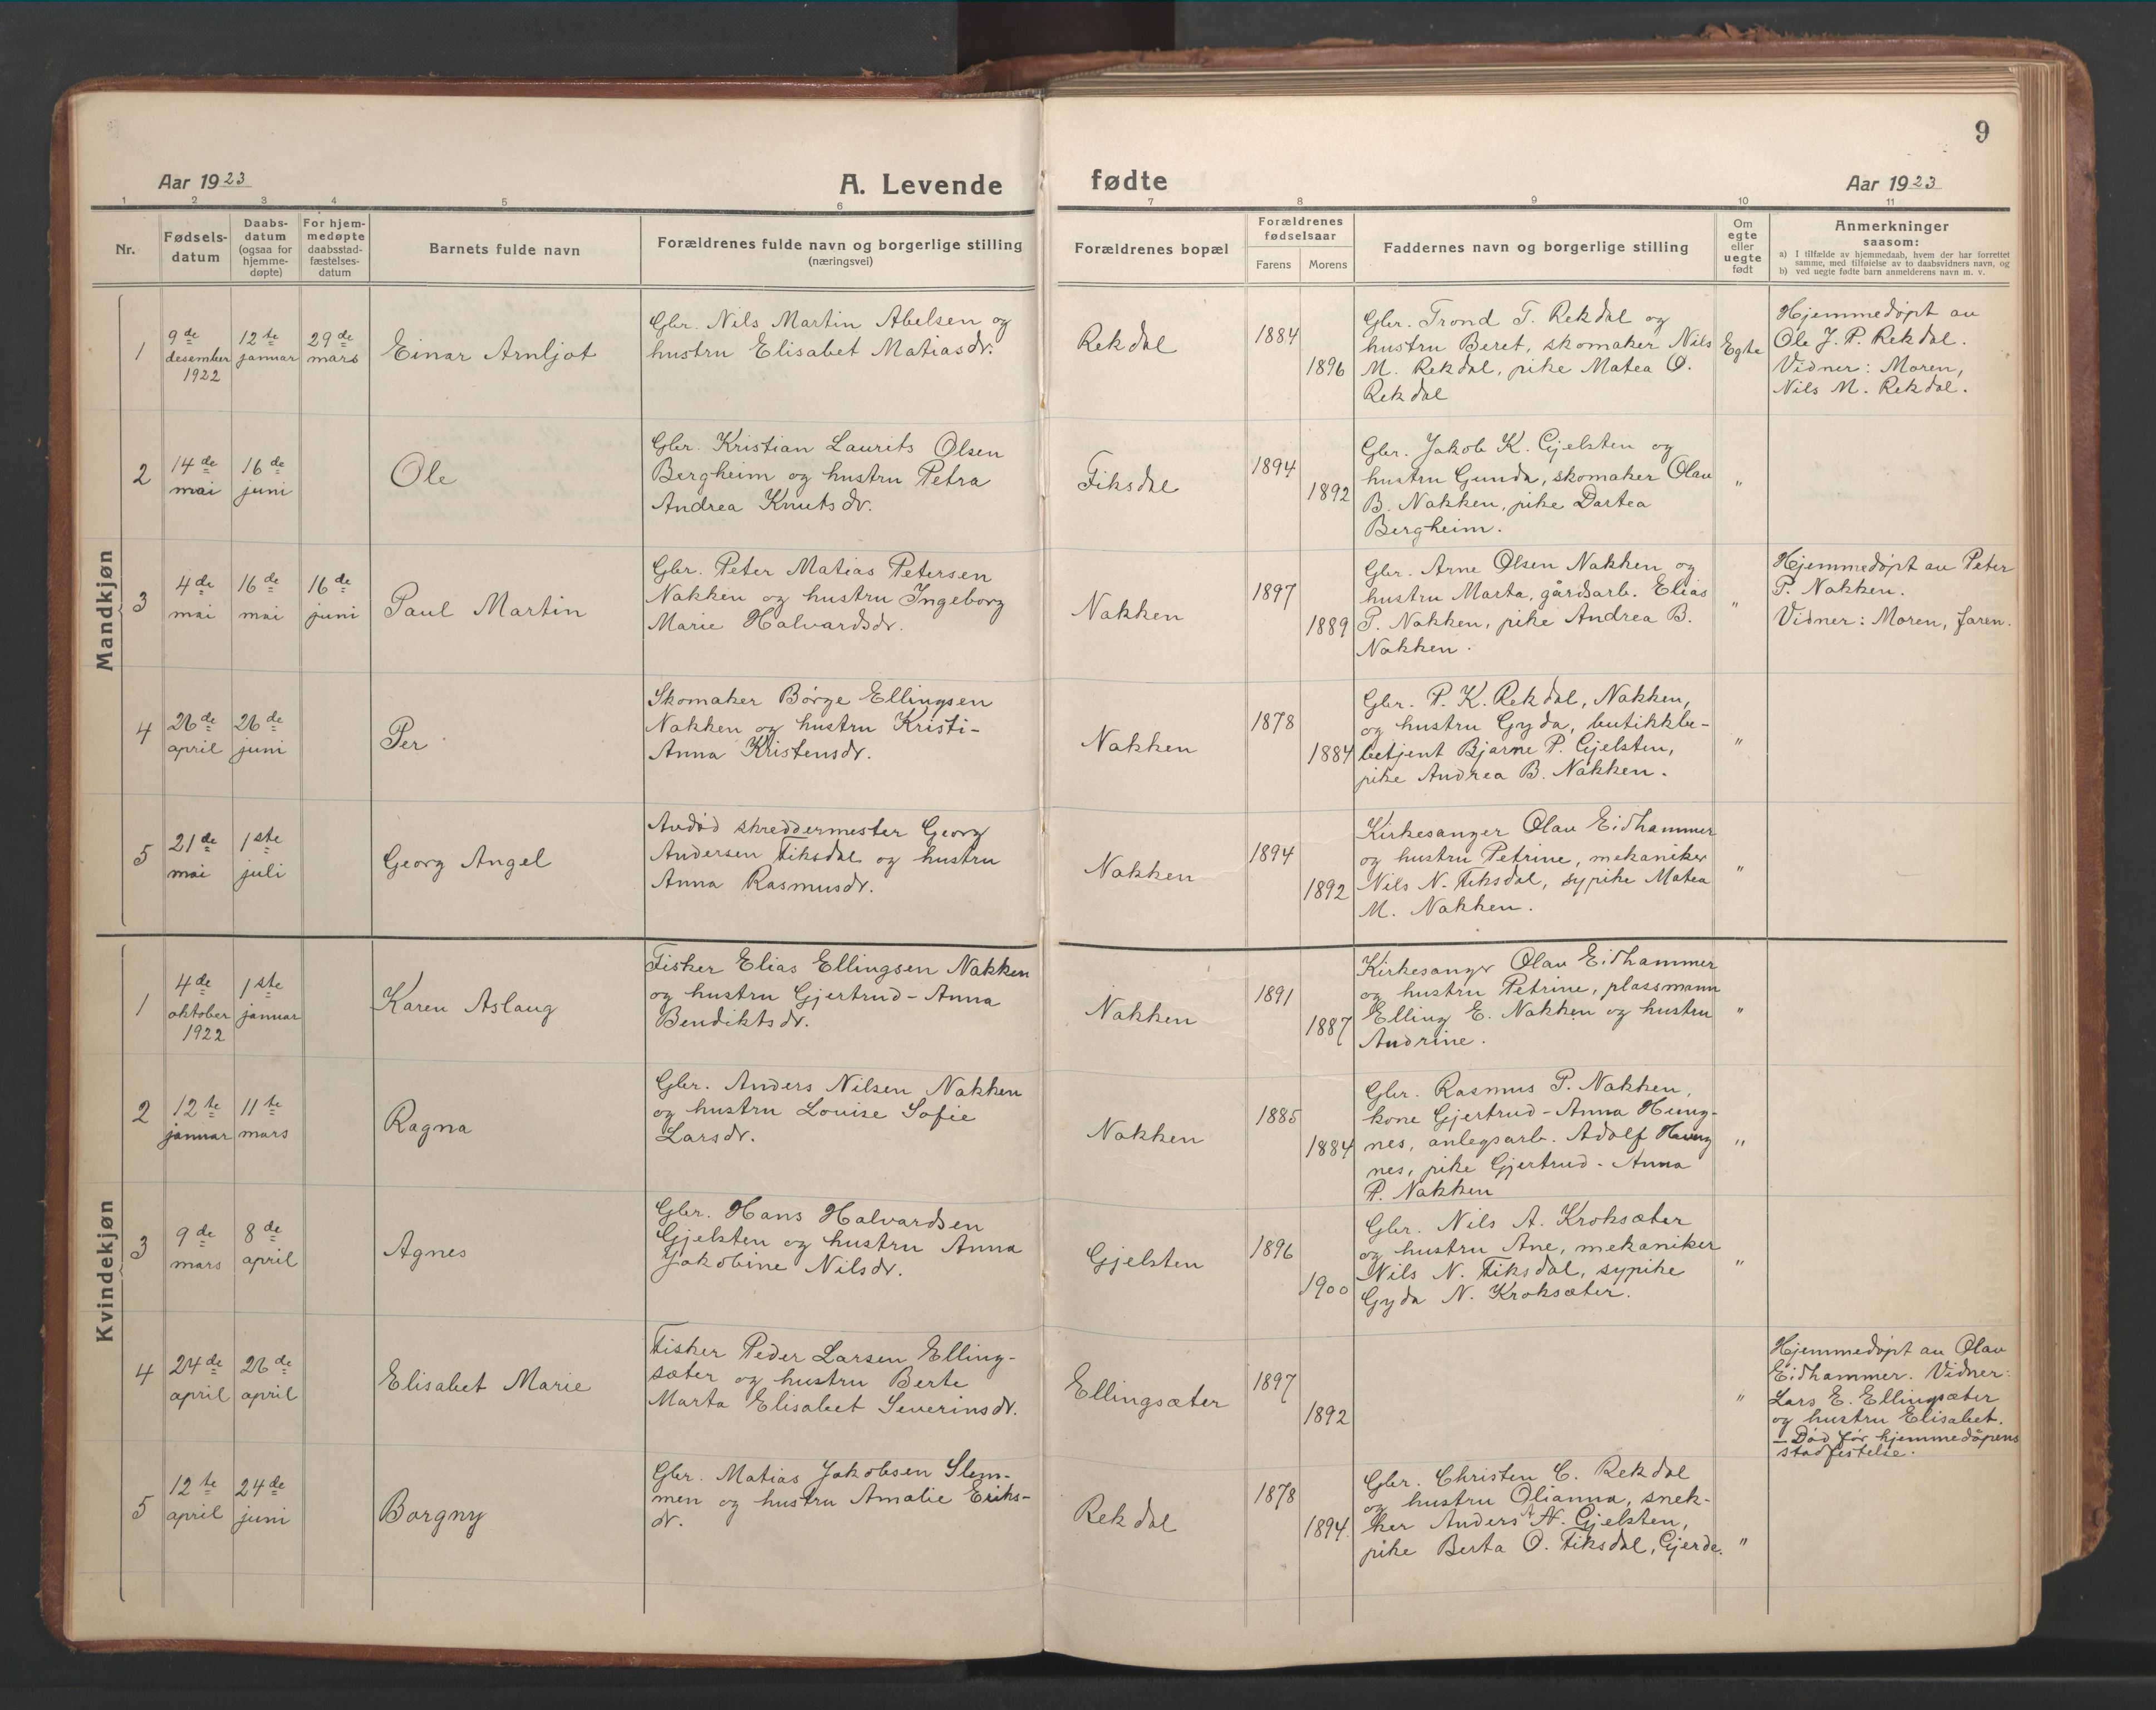 9
Aar 1923
A. Levende fødte
Aar 1923
1 2 3 4 5 6 7 8 9 10 11
Nr.
Fødsels-
datum
Daabs-
datum
(ogsaa for
hjemme-
døpte)
For hjem-
medøpte
daabsstad-
fæstelses-
datum
Barnets fulde navn
Forældrenes fulde navn og borgerlige stilling
(næringsvei)
Forældrenes bopæl
Forældrenes
fødselsaar
Farens Morens
Faddernes navn og borgerlige stilling
Om
egte
eller
uegte
født
Anmerkninger
saasom:
a) I tilfælde av hjemmedaab, hvem der har forrettet
samme, med tilføielse av to daabsvidners navn, og
b) ved uegte fødte barn anmelderens navn m. v.
Mandkjøn
1
9de
desember
1922
12te
januar
29de
mars
Einar Arnljot
Gbr. Nils Martin Abelsen og
hustru Elisabet Matiasdr.
Rekdal
1884
1896
Gbr. Trond T. Rekdal og
hustru Beret, skomaker Nils
M. Rekdal, pike Matea O.
Rekdal
Egte
Hjemmedøpt av
Ole J. P. Rekdal.
Vidner: Moren,
Nils M. Rekdal.
2
14de
mai
16de
juni
Ole
Gbr. Kristian Laurits Olsen
Bergheim og hustru Petra
Andrea Knutsdr.
Fiksdal
1894
1892
Gbr. Jakob K. Gjelsten og
hustru Gunda, skomaker Olav
B. Nakken, pike Dartea
Bergheim.
"
3
4de
mai
16de
mai
16de
juni
Paul Martin
Gbr. Peter Matias Petersen
Nakken og hustru Ingeborg
Marie Halvardsdr.
Nakken
1897
1889
Gbr. Arne Olsen Nakken og
hustru Marta, gårdsarb. Elias
P. Nakken, pike Andrea B.
Nakken.
"
Hjemmedøpt av Peter
P. Nakken.
Vidner: Moren, faren.
4
26de
april
26de
juni
Per
Skomaker Børge Ellingsen
Nakken og hustru Kristi-
Anna Kristensdr.
Nakken
1878
1884
Gbr. P. K. Rekdal, Nakken,
og hustru Gyda, butikkbe-
betjent Bjarne P. Gjelsten,
pike Andrea B. Nakken.
"
5
21de
mai
1ste
juli
Georg Angel
Avdød skreddermester Georg
Andersen Fiksdal og hustru
Anna Rasmusdr.
Nakken
1894
1892
Kirkesanger Olav Eidhammer
og hustru Petrine, mekaniker
Nils N. Fiksdal, sypike Matea
M. Nakken.
"
Kvindekjøn
1
4de
oktober
1922
1ste
januar
Karen Aslaug
Fisker Elias Ellingsen Nakken
og hustru Gjertrud-Anna
Bendiktsdr.
Nakken
1891
1887
Kirkesanger Olav Eidhammer
og hustru Petrine, plassmann
Elling E. Nakken og hustru
Andrine.
"
2
12te
januar
11te
mars
Ragna
Gbr. Anders Nilsen Nakken
og hustru Louise Sofie
Larsdr.
Nakken
1885
1884
Gbr. Rasmus P. Nakken,
kone Gjertrud-Anna Hung-
nes, anlegsarb. Adolf Hung
nes, pike Gjertrud-Anna
P. Nakken
"
3
9de
mars
8de
april
Agnes
Gbr. Hans Halvardsen
Gjelsten og hustru Anna
Jakobine Nilsdr.
Gjelsten
1896
1900
Gbr. Nils A. Kroksæter
og hustru Ane, mekaniker
Nils N. Fiksdal, sypike
Gyda N. Kroksæter.
"
4
24de
april
26de
april
Elisabet Marie
Fisker Peder Larsen Elling-
sæter og hustru Berte
Marta Elisabet Severinsdr.
Ellingsæter
1897
1892
"
Hjemmedøpt av Olav
Eidhammer. Vidner:
Lars E. Ellingsæter
og hustru Elisabet.
– Død før hjemmedåpens
stadfestelse.
5
12te
april
24de
juni
Borgny
Gbr. Matias Jakobsen Slem-
men og hustru Amalie Eriks-
dr.
Rekdal
1878
1894.
Gbr. Christen C. Rekdal
og hustru Olianna, snek-
ker Anders N. Gjelsten,
pike Berta O. Fiksdal, Gjerde.
"